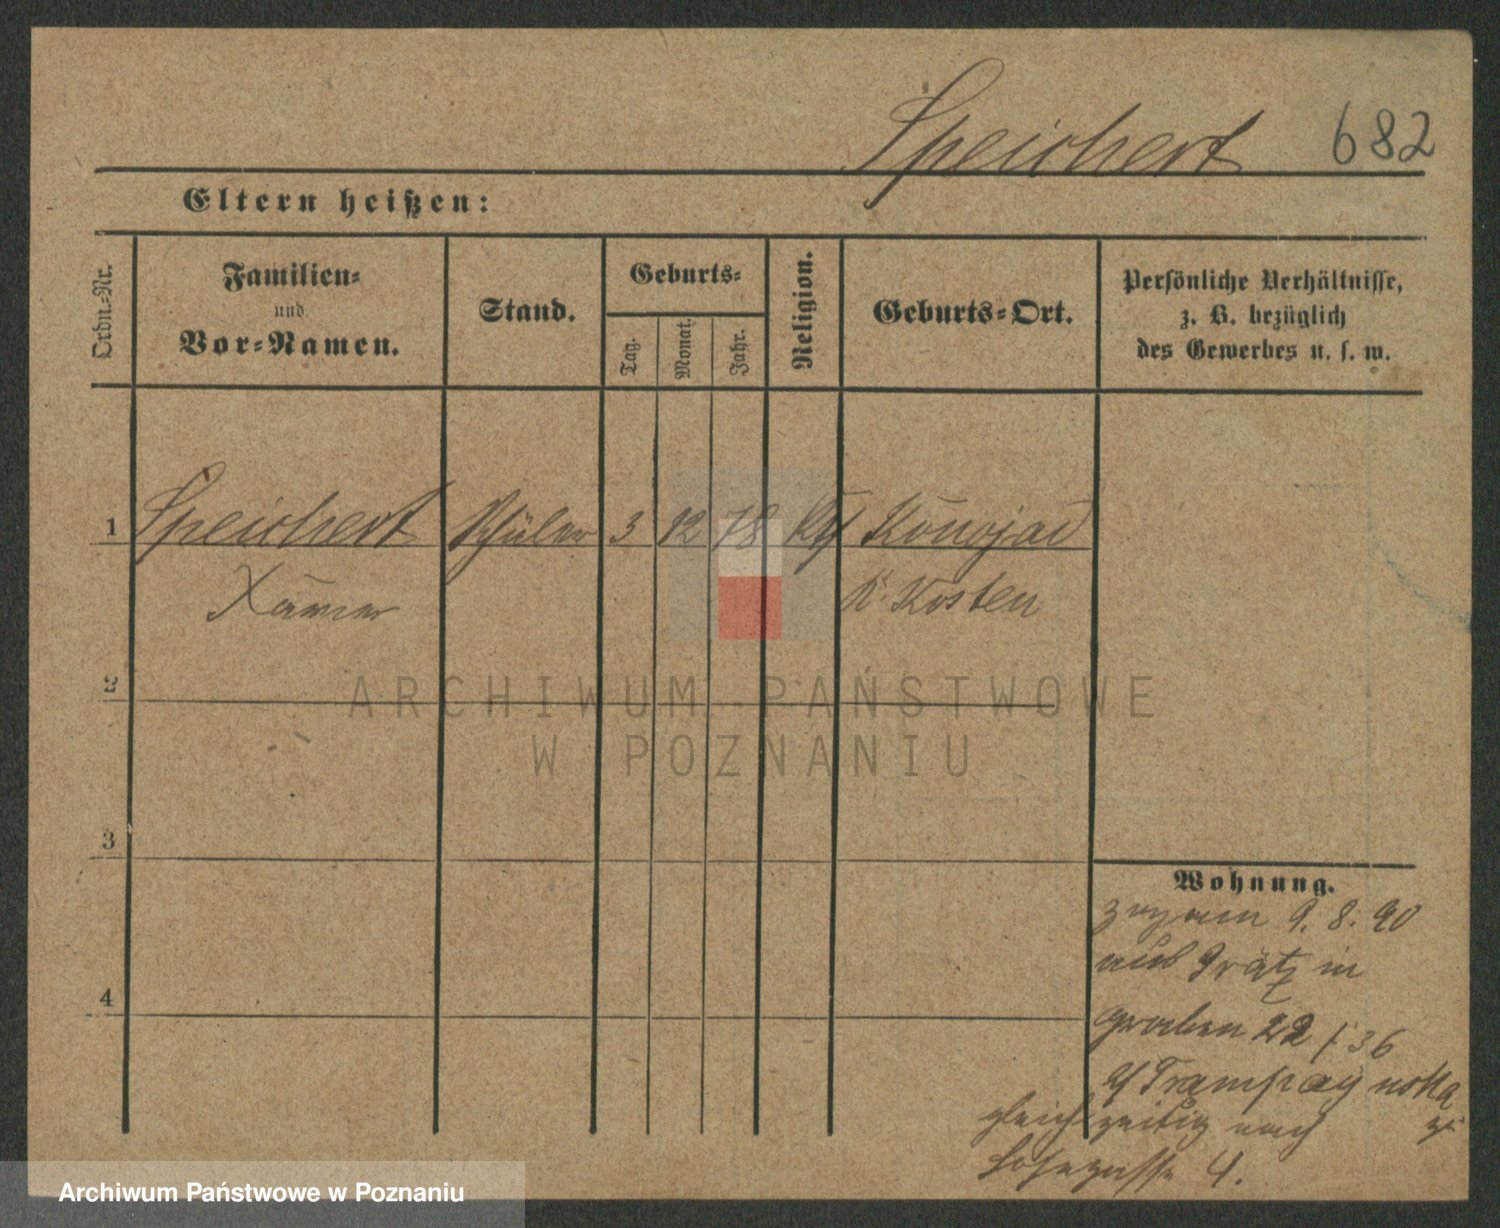 Speichert 682
Eltern heißen:
Ordn.-Nr.
Familien-
und
Vor-Namen.
Stand.
Geburts-
Tag.
Monat.
Jahr.
Religion.
Geburts-Ort.
Persönliche Verhältnisse,
z. B. bezüglich
des Gewerbes u. s. w.
1 Speichert Schüler 3 12 78 Kth Konojad
Xaver K. Kosten
2
3
4
Wohnung.
zugezogen 9. 8. 90
aus Grätz in
Graben 22 / 36
gleichzeitig nach
4.
ARCHIWUM PAŃSTWOWE
W POZNANIU
Archiwum Państwowe w Poznaniu